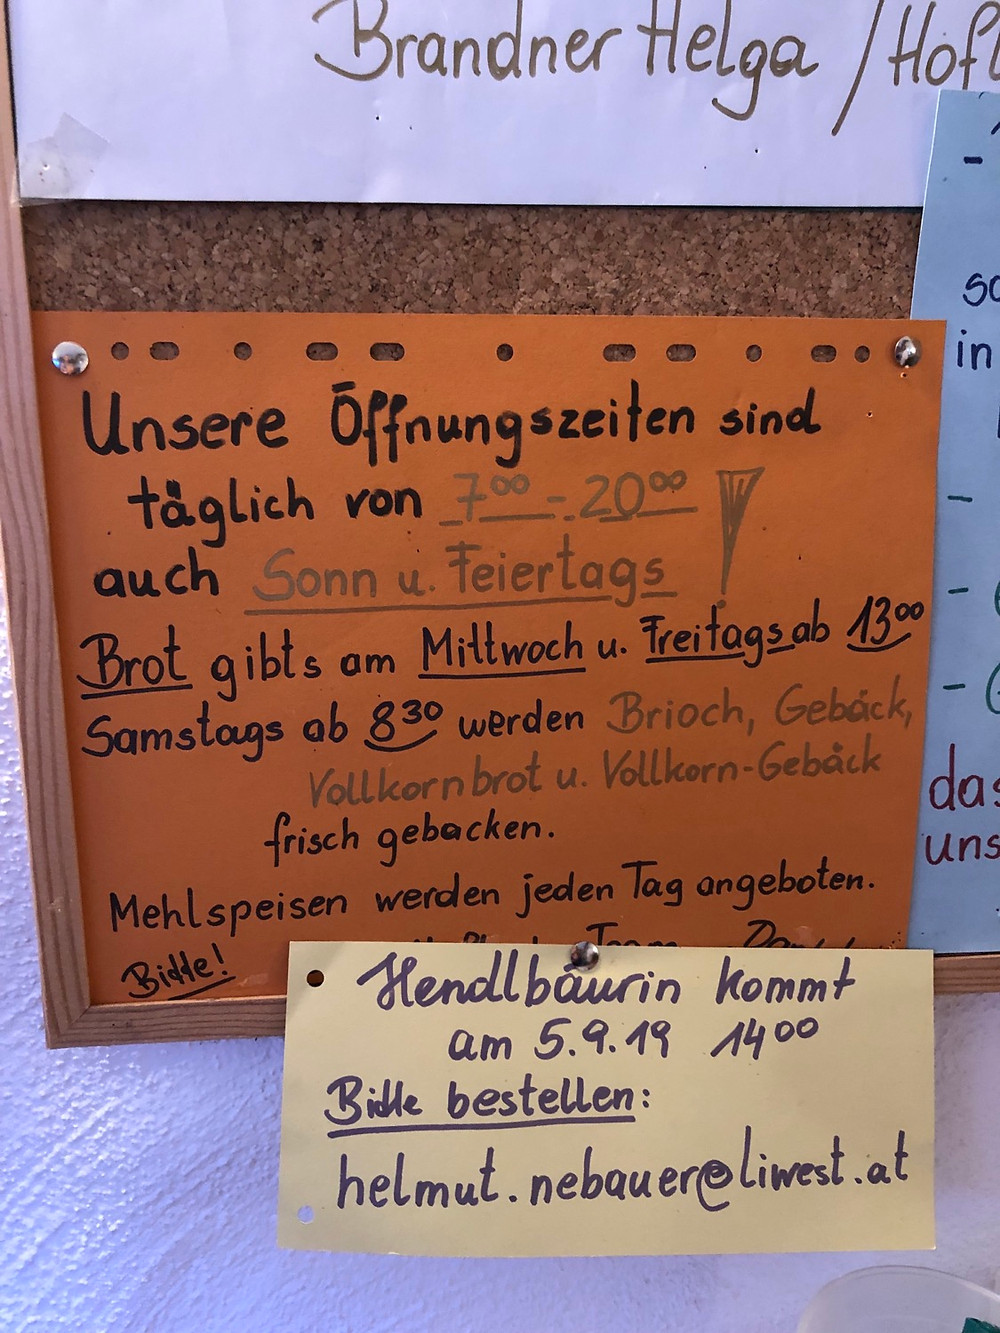 Brandner Helga / Hofl
Unsere Öffnungszeiten sind
täglich von 7⁰⁰ - 20⁰⁰ !
auch Sonn u. Feiertags
Brot gibts am Mittwoch u. Freitags ab 13⁰⁰
Samstags ab 8³⁰ werden Brioch, Gebäck,
Vollkornbrot u. Vollkorn-Gebäck
frisch gebacken.
Mehlspeisen werden jeden Tag angeboten.
Bitte!
Hendlbäurin kommt
am 5.9.19 14⁰⁰
Bitte bestellen:
helmut.nebauer@liwest.at
in
das
uns